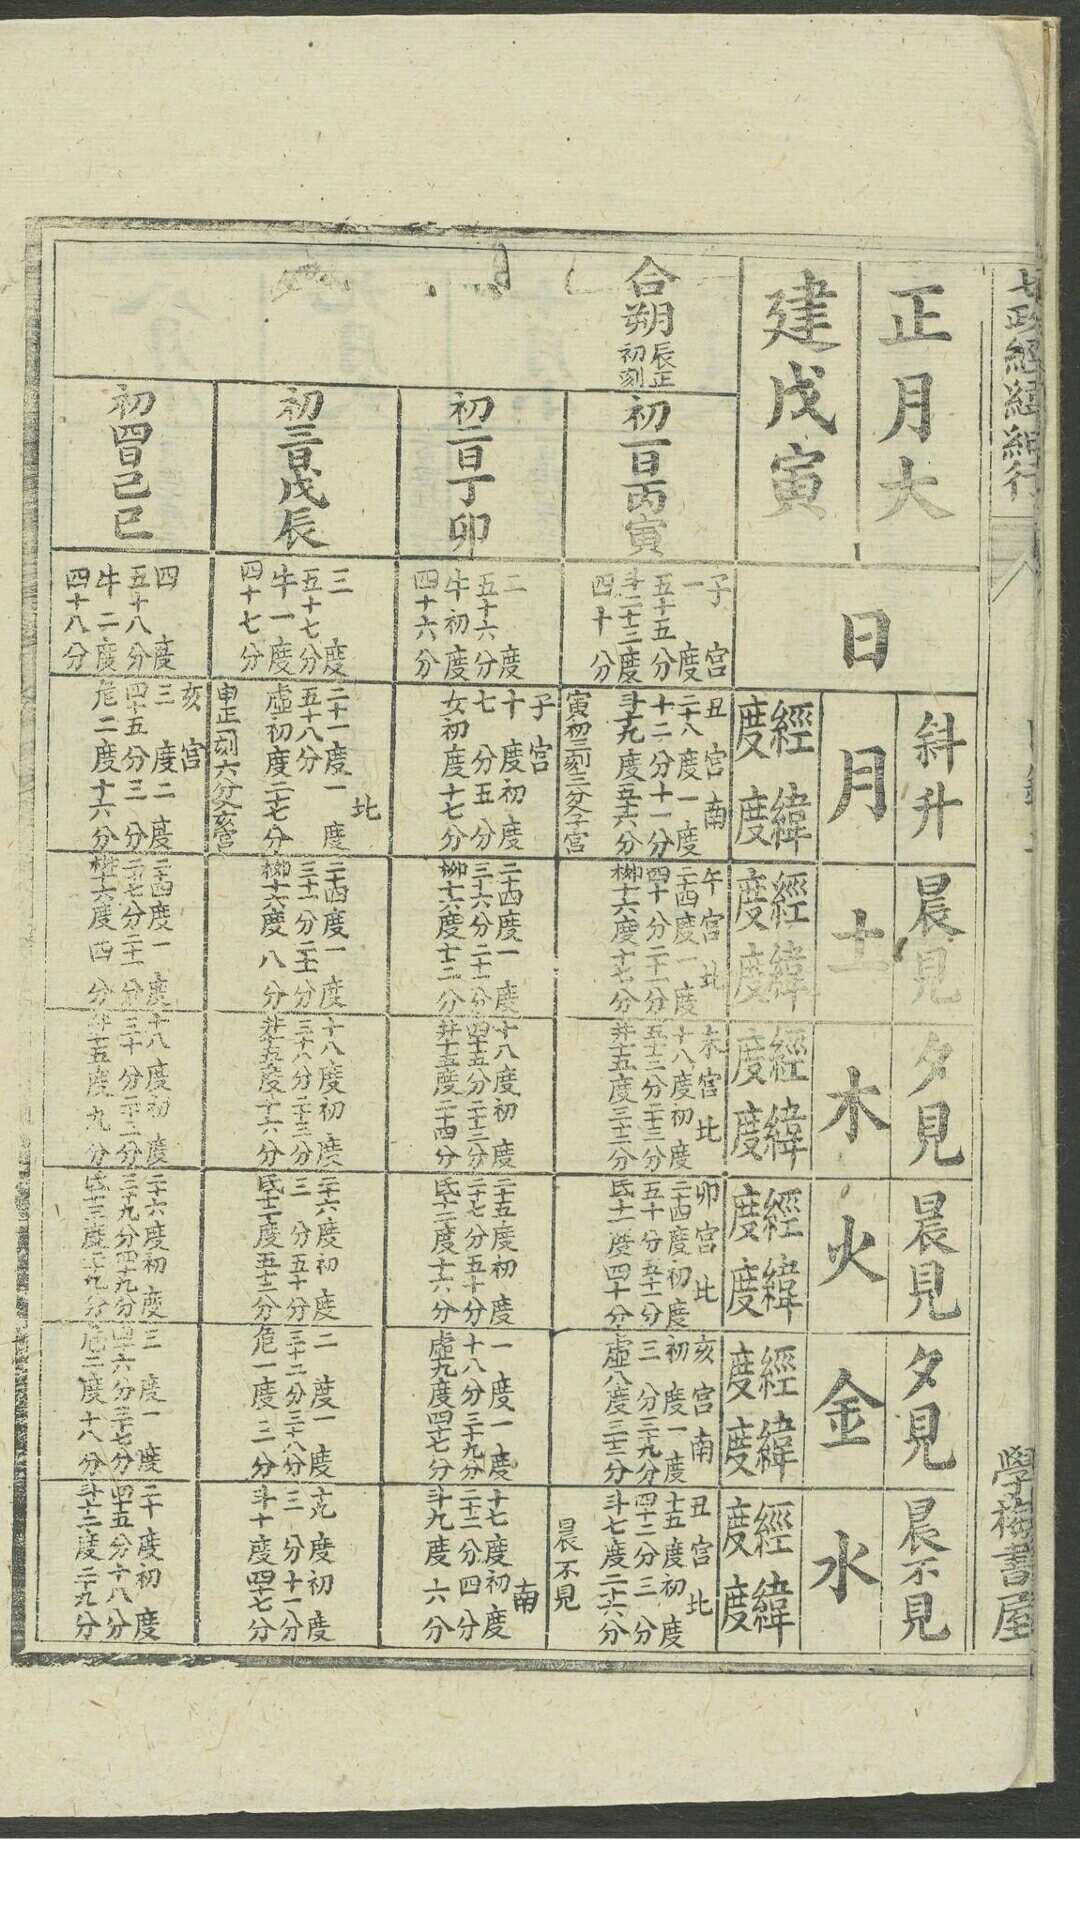 七政經緯躔行
學海書屋
正月大
建戊寅
日
斜升
月
經度
緯度
晨見
土
經度
緯度
夕見
木
經度
緯度
晨見
火
經度
緯度
夕見
金
經度
緯度
晨不見
水
經度
緯度
合朔
辰正
初刻
初一日丙寅
子宮
一度
五十五分
斗二十二度
四十分
丑宮南
二十八度一度
十二分十一分
斗十九度五十六分
寅初三刻三分入子宮
午宮北
二十四度一度
四十分二十一分
柳十六度十七分
未宮北
十八度初度
五十三分二十三分
井十五度三十二分
卯宮北
二十四度初度
五十分五十一分
氐十一度四十分
亥宮南
初度一度
三分三十九分
虛八度三十二分
丑宮北
十五度初度
四十二分三分
斗七度二十六分
晨不見
初二日丁卯
二度
五十六分
牛初度
四十六分
子宮
十度初度
七分五分
女初度十七分
二十四度一度
三十六分二十一分
柳十六度十二分
十八度初度
四十五分二十三分
井十五度二十四分
二十五度初度
二十七分五十分
氐十二度十六分
一度一度
十八分三十九分
虛九度四十七分
南
十七度初度
二十二分四分
斗九度六分
初三日戊辰
三度
五十七分
牛一度
四十七分
北
二十一度一度
五十八分
虛初度二十七分
申正一刻六分入亥宮
二十四度一度
三十一分二十一分
柳十六度八分
十八度初度
三十八分二十三分
井十五度十六分
二十六度初度
三分五十分
氐十二度五十三分
二度一度
三十二分三十八分
危一度三分
十九度初度
三分十一分
斗十度四十七分
初四日己巳
四度
五十八分
牛二度
四十八分
亥宮
三度二度
四十五分三分
危二度十六分
二十四度一度
二十七分二十一分
柳十六度四分
十八度初度
三十分二十三分
井十五度九分
二十六度初度
三十九分四十九分
氐十三度二十九分
三度一度
四十六分三十七分
危二度十八分
二十度初度
四十五分十八分
斗十二度二十九分